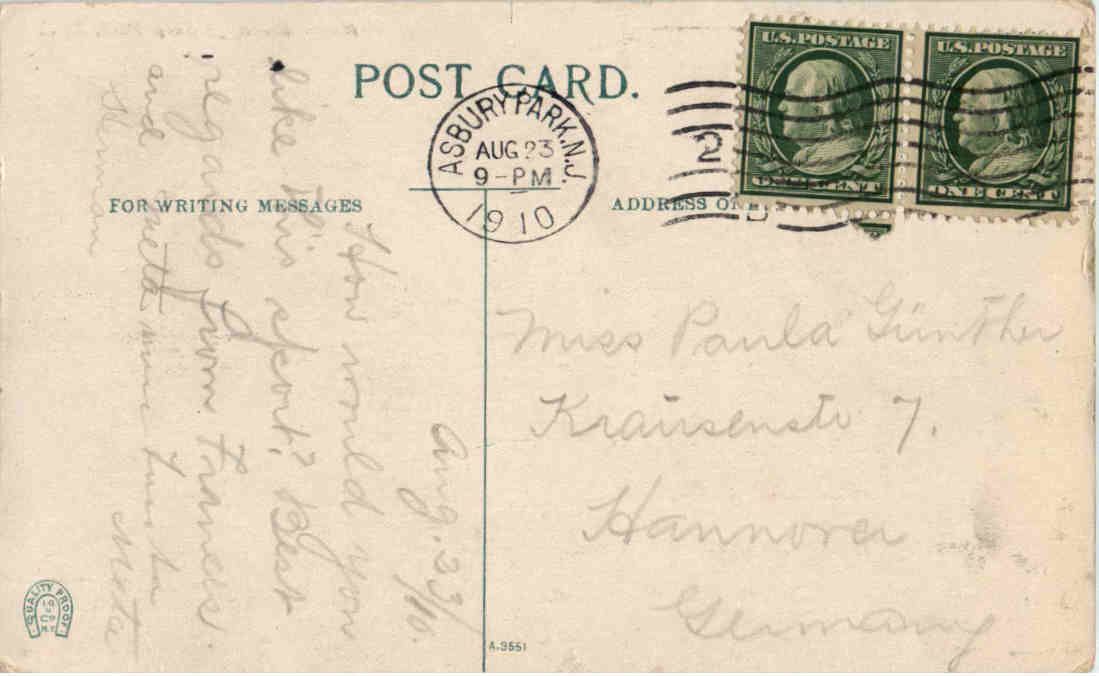 POST CARD.
ASBURY PARK, N.J.
AUG 23
9-PM
1910
2
U.S. POSTAGE
ONE CENT
U.S. POSTAGE
ONE CENT
FOR WRITING MESSAGES
ADDRESS ON
Aug. 23/10.
How would you
like this sport? Best
regards from
and
Herman
Miss Paula Günther
Krausenstr 7.
Hannover
Germany
QUALITY PROOF
A-3551